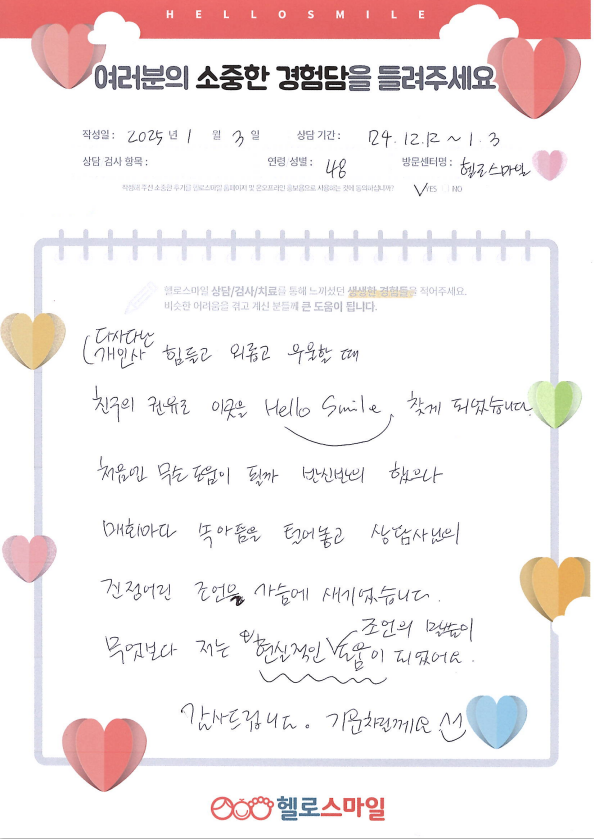 HELLOSMILE
여러분의 소중한 경험담을 들려주세요
작성일 : 2025 년 1 월 3 일 상담 기간 : 24. 12. 12 ~ 1. 3
상담 검사 항목 : 연령 성별 : 48 방문센터명 : 헬로스마일
작성해 주신 소중한 후기를 헬로스마일 홈페이지 및 온오프라인 홍보용으로 사용하는 것에 동의하십니까? ✓YES NO
헬로스마일 상담/검사/치료를 통해 느끼셨던 생생한 경험들을 적어주세요.
비슷한 어려움을 겪고 계신 분들께 큰 도움이 됩니다.
(다사다난
개인사 힘들고 외롭고 우울할 때
친구의 권유로 이곳을 Hello Smile, 찾게 되었습니다
처음엔 무슨 도움이 될까 반신반의 했으나
매회마다 속아픔을 털어놓고 상담사님의
진정어린 조언을 가슴에 새기었습니다.
조언의 말씀이
무엇보다 저는 현실적인 도움이 되었어요.
감사드립니다. 기운차릴께요
헬로스마일